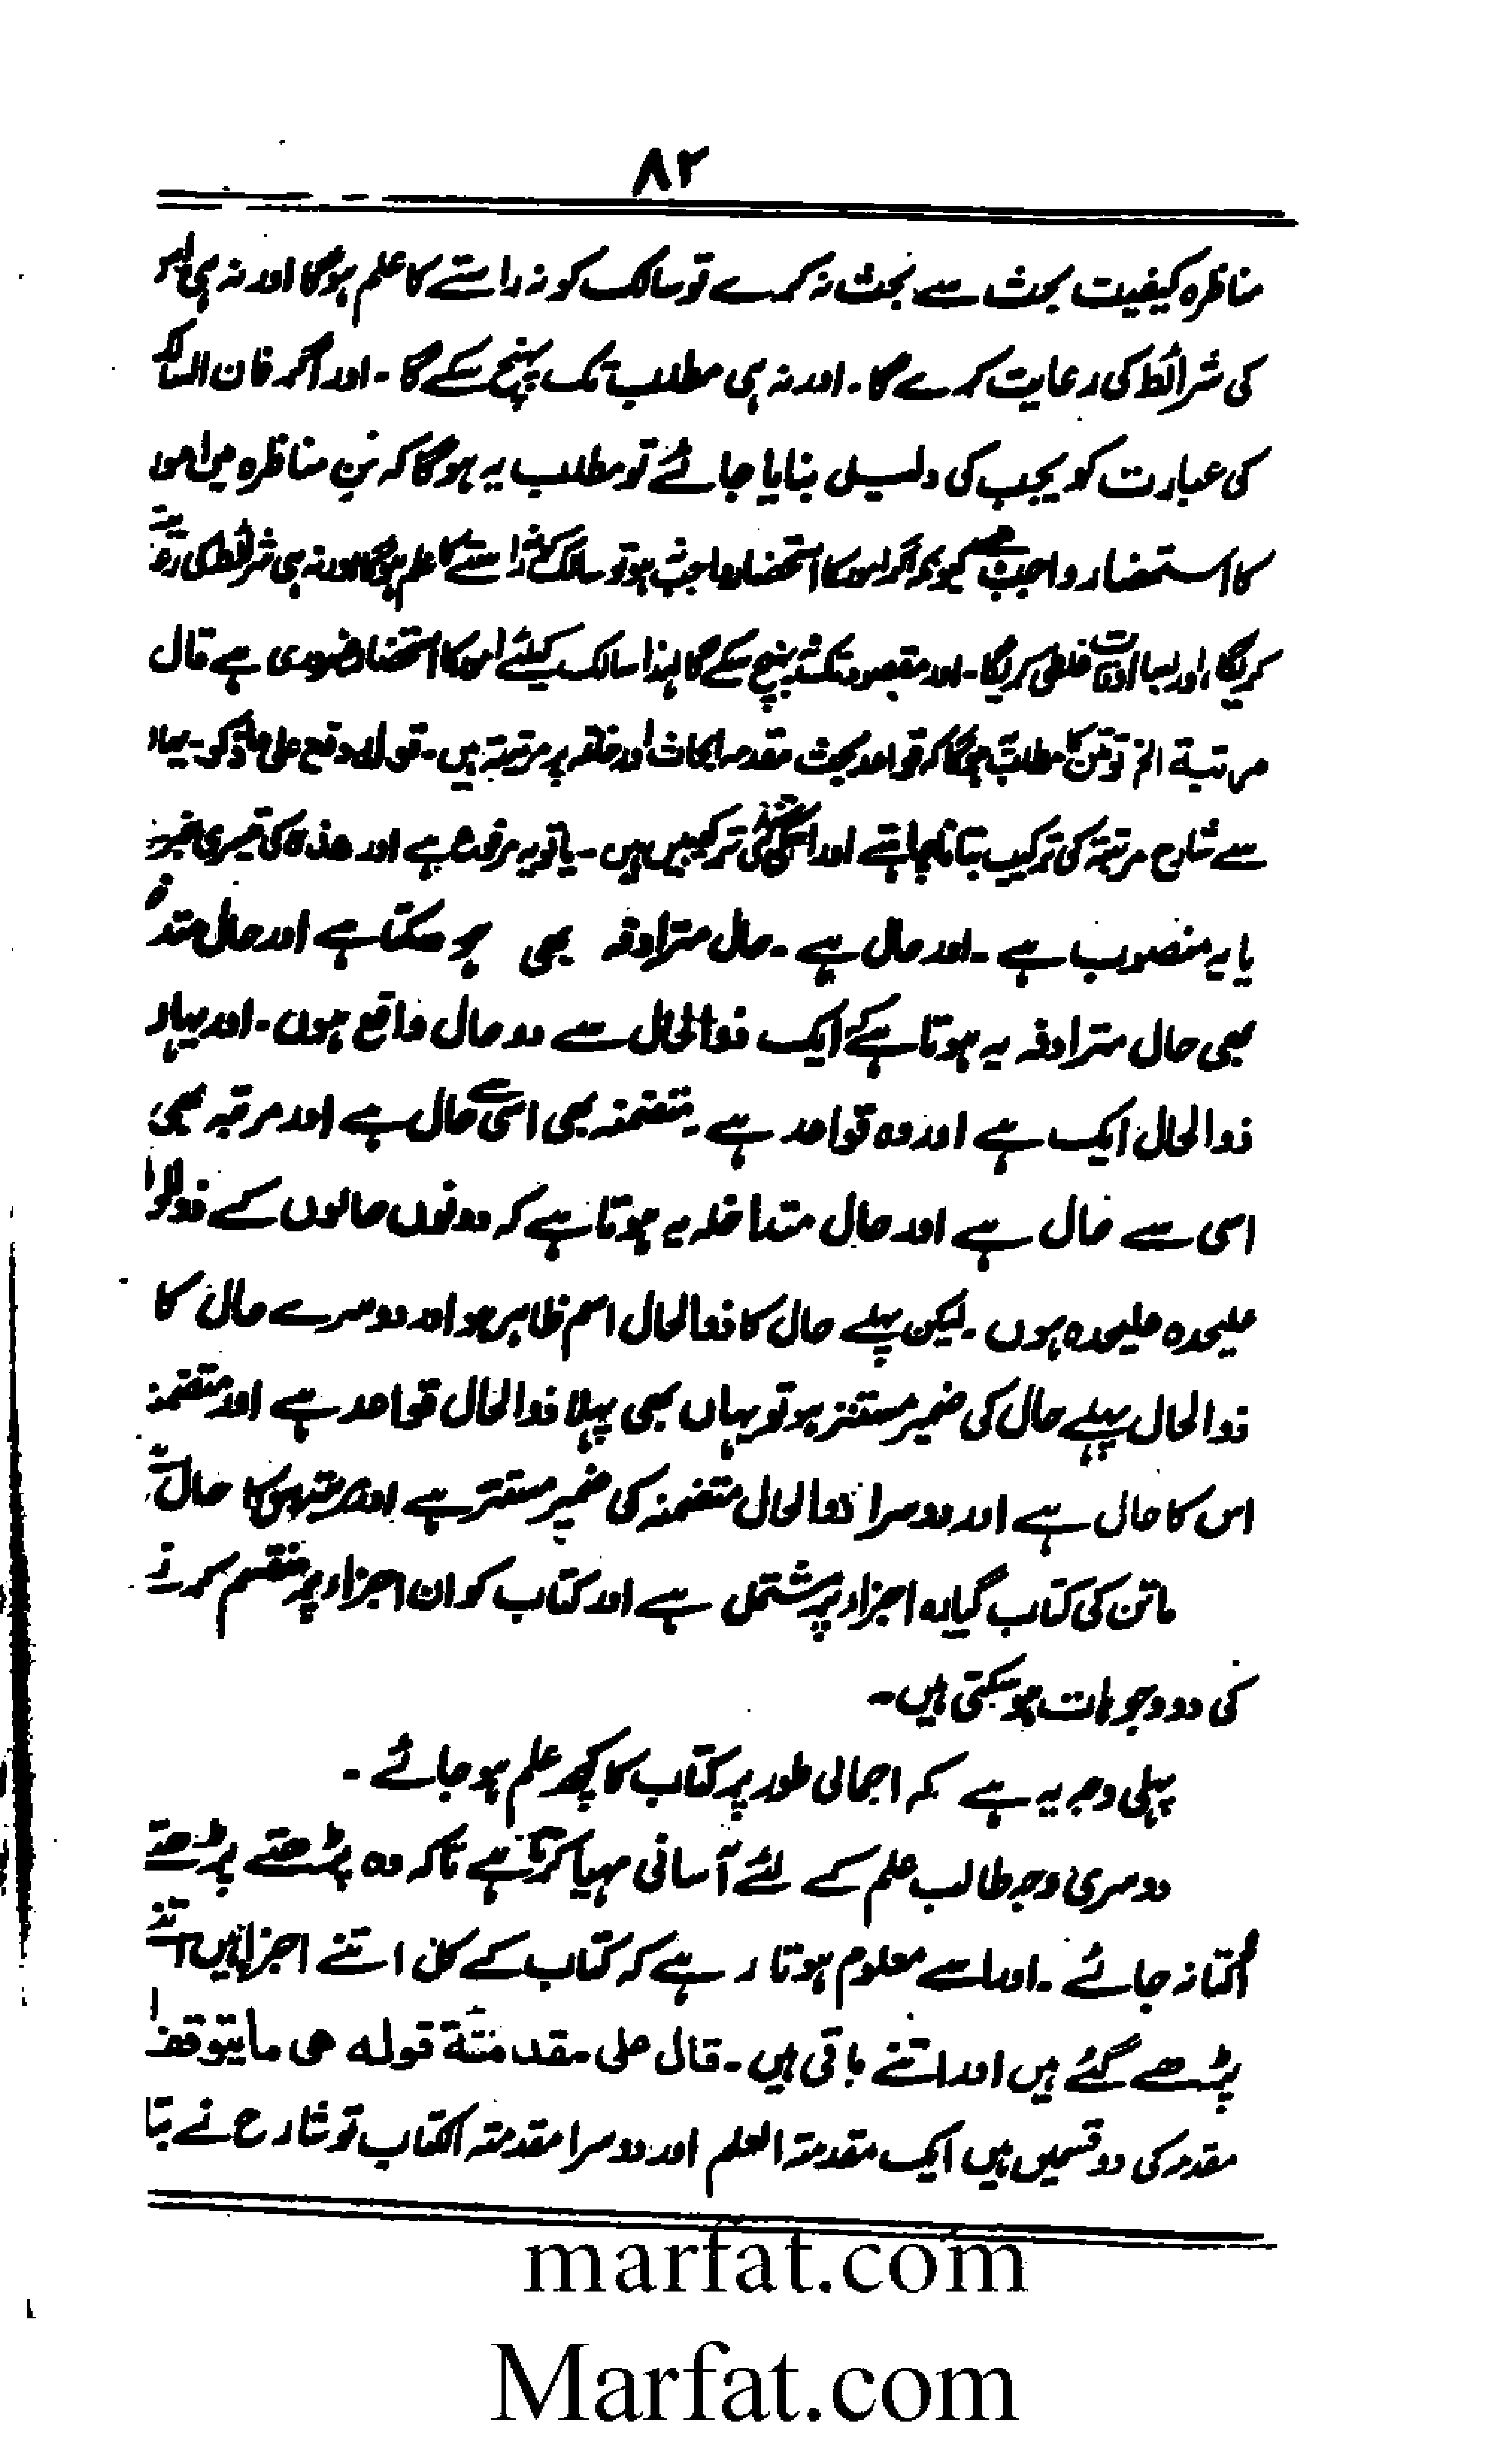 ۸۲
مناظرہ کیفیت بحث سے بحث نہ کرے تو سالک کو نہ راستے کا علم ہوگا اور نہ ہی اس
کی شرائط کی رعایت کرے گا۔ اور نہ ہی مطلب تک پہنچ سکے گا۔ اور اگر فان السالک
کی عبارت کو یجب کی دلیل بنایا جائے تو مطلب یہ ہوگا کہ فن مناظرہ میں اس
کا استحضار واجب ہے کیونکہ اگر اس کا استحضار واجب نہ ہو تو سالک کو نہ راستے کا علم ہوگا اور نہ ہی شرائط کی رعایت
کریگا، اور بسا اوقات غلطی کریگا۔ اور مقصود تک نہ پہنچ سکے گا لہذا سالک کیلئے اس کا استحضار ضروری ہے قال
مرتبۃ الخ تو متن کا مطلب یہ ہوگا کہ قواعد بحث مقدمہ ابحاث اور خاتمہ پر مرتبۃ ہیں۔ قولہ وقع علی ما ذکر۔ یہاں
سے شارح مرتبۃ کی ترکیب بتانا چاہتے اور اسکی کئی ترکیبیں ہیں۔ یا تو یہ مرفوع ہے اور ھذہ کی تیسری خبر ہے
یا یہ منصوب ہے۔ اور حال ہے۔ حال مترادفہ بھی ہو سکتا ہے اور حال متداخلہ
بھی حال مترادفہ یہ ہوتا ہے کہ ایک ذوالحال سے دو حال واقع ہوں۔ اور یہاں
ذوالحال ایک ہے اور وہ قواعد ہے۔ متضمنہ بھی اسی سے حال ہے اور مرتبہ بھی
اسی سے حال ہے اور حال متداخلہ یہ ہوتا ہے کہ دونوں حالوں کے ذوالحال
علیحدہ علیحدہ ہوں۔ لیکن پہلے حال کا ذوالحال اسم ظاہر ہو اور دوسرے حال کا
ذوالحال پہلے حال کی ضمیر مستتر ہو تو یہاں بھی پہلا ذوالحال قواعد ہے اور متضمنہ
اس کا حال ہے اور دوسرا ذوالحال متضمنہ کی ضمیر مستتر ہے اور مرتبہ اس کا حال ہے
ماتن کی کتاب گیارہ اجزاء پر مشتمل ہے اور کتاب کو ان اجزاء پر منقسم کرنے
کی دو وجوہات ہو سکتی ہیں۔
پہلی وجہ یہ ہے کہ اجمالی طور پر کتاب کا کچھ علم ہو جائے۔
دوسری وجہ طالب علم کے لئے آسانی مہیا کرنا ہے تاکہ وہ پڑھتے پڑھتے
اکتا نہ جائے۔ اور اسے معلوم ہوتا رہے کہ کتاب کے کل اتنے اجزا ہیں اتنے
پڑھے گئے ہیں اور اتنے باقی ہیں۔ قال علی مقدمتۃ قولہ ھی ما یتوقف
مقدمہ کی دو قسمیں ہیں ایک مقدمتہ العلم اور دوسرا مقدمتہ الکتاب تو شارح نے بتا
marfat.com
Marfat.com